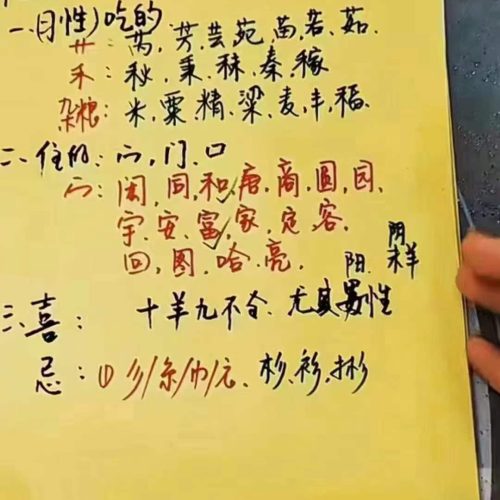 一、(月性)吃的
艹:芮,芳,芸,苑,苗,若,茹.
禾:秋,秉,秣,秦,稼
杂粮:米,粟,精,梁,麦,丰,稻.
二、住的:宀,门,口
宀:闲,同,和,唐,商,圆,园,
宇,安,富,家,定,客
回,图,哈,亮,
阳.
阴
羊羊
三、喜: 十羊九不全.尤其属性
忌:①彡/糸/巾/衣、杉、衫、彬